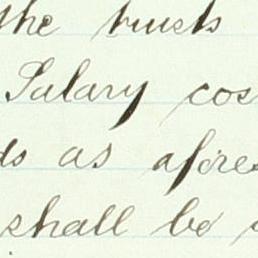 the trusts
Salary cos
ds as afore
shall be